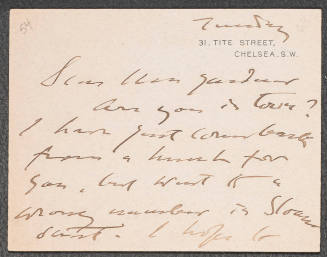 54
Tuesday
31, TITE STREET,
CHELSEA. S.W.
Dear Mrs Gardner
Are you in town?
I have just come back
from a hunt for
you, but went to a
wrong number in Sloane
Street. I hope to